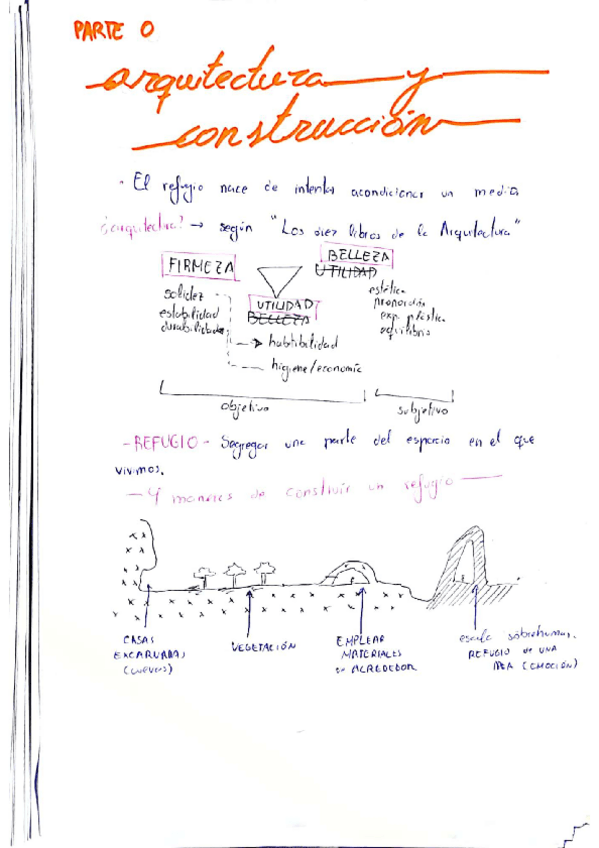 PARTE 0
arquitectura y
construcción
· El refugio nace de intentar acondicionar un medio
¿arquitectura? → según "Los diez libros de la Arquitectura"
FIRMEZA
BELLEZA
UTILIDAD
solidez
estabilidad
durabilidad
UTILIDAD
BELLEZA
estética
proporción
exp. plástica
equilibrio
habitibilidad
higiene/economic
objetivo
subjetivo
- REFUGIO - Segregar una parte del espacio en el que
vivimos.
- 4 maneras de construir un refugio
CASAS
EXCAVADAS
(cuevas)
VEGETACIÓN
EMPLEAR
MATERIALES
ALREDEDOR
escala sobrehumana,
REFUGIO de UNA
IDEA (EMOCIÓN)